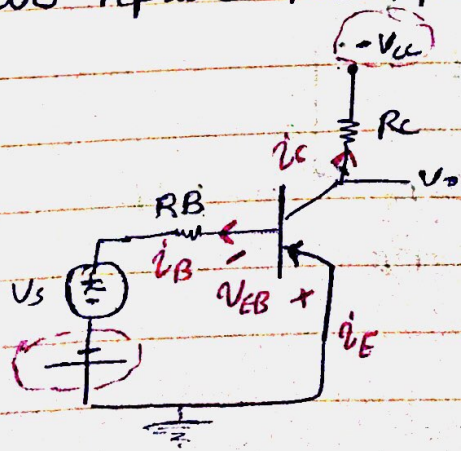 -Vcc
Rc
ic
Vo
RB
iB
- VEB +
Vs
iE